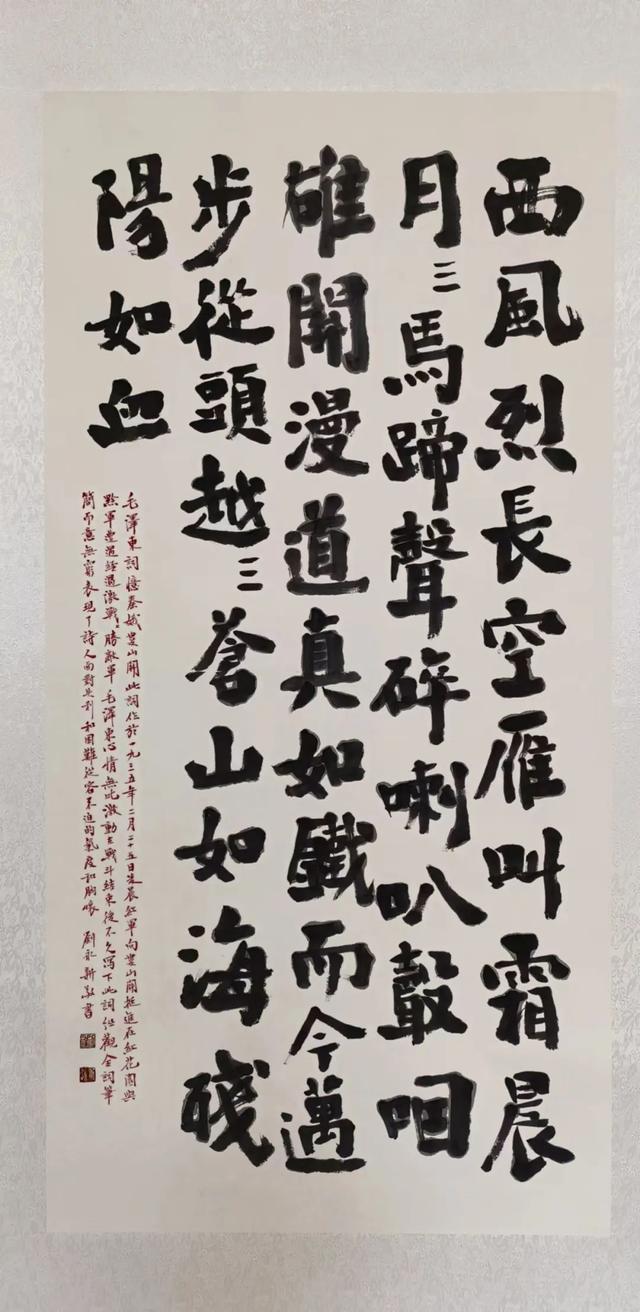 西風烈長空雁叫霜晨
月三馬蹄聲碎喇叭聲咽
雄關漫道真如鐵而今邁
步從頭越三蒼山如海殘
陽如血
毛澤東詞憶秦娥婁山關此詞作於一九三五年二月二十五日凌晨紅軍向婁山關挺進在紅花園與
黔軍遭遇經過激戰、勝敵軍毛澤東心情無比激動在戰斗結束後不久寫下此詞縱觀全詞筆
簡而意無窮表現了詩人面對勝利和困難從容不迫的氣度和胸懷 劉永新敬書